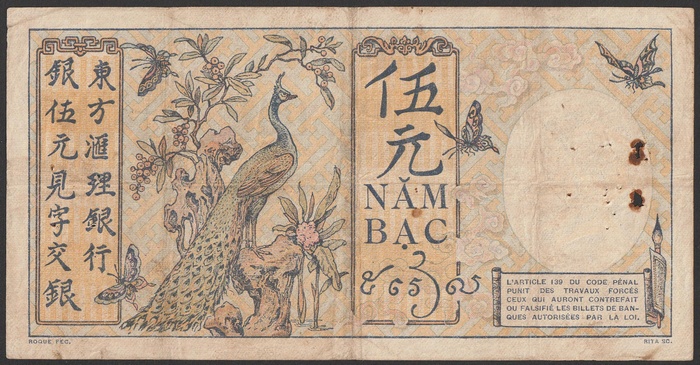 東方滙理銀行
銀伍元見字交銀
伍元
NĂM
BẠC
L'ARTICLE 139 DU CODE PÉNAL
PUNIT DES TRAVAUX FORCÉS
CEUX QUI AURONT CONTREFAIT
OU FALSIFIÉ LES BILLETS DE BAN-
QUES AUTORISÉES PAR LA LOI.
ROQUE FEC.
RITA SC.